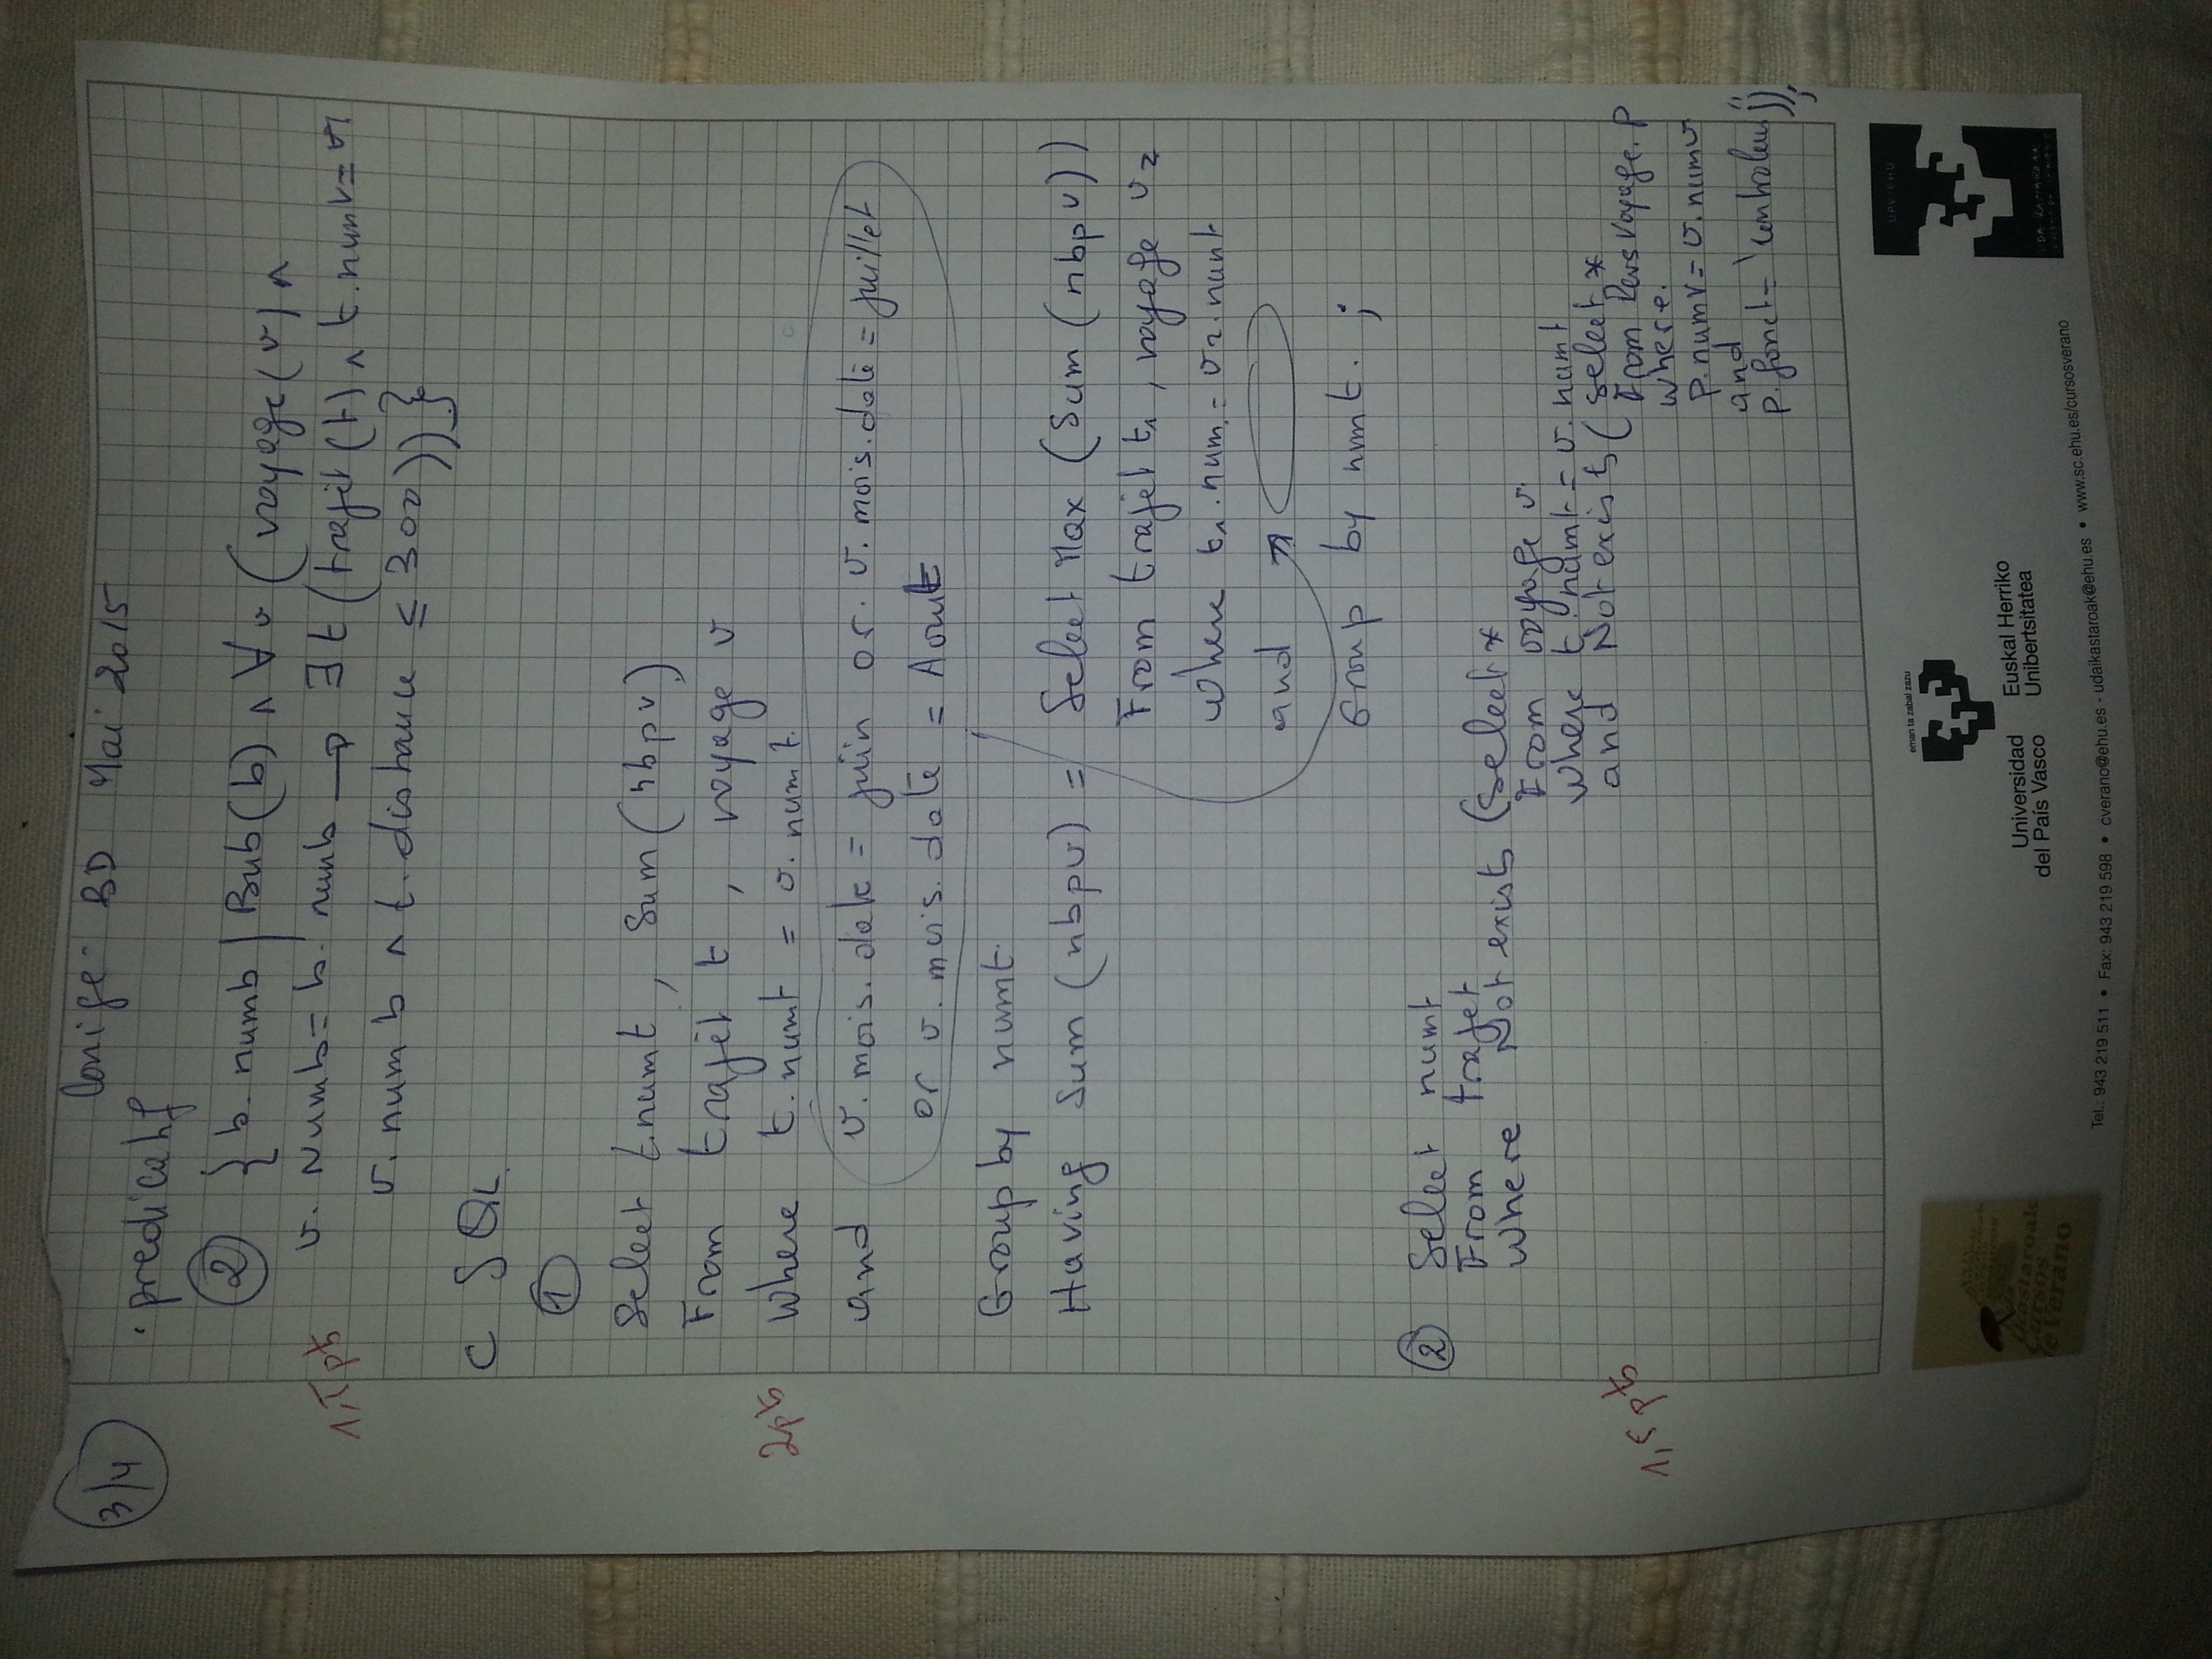 3/4
Corrigé BD Mai 2015
• predicatif
② { b. numb | Bub(b) ∧ ∀v ( voyage(v) ∧
v. Numb = b. numb → ∃t (trajet(t) ∧ t.numv = v
1,5 pts
v. numb ∧ t. distance ≤ 300)) }
C SQL
①
Select t.numt, Sum(nbpv)
From trajet t, voyage v
2pts
Where t.numt = v.numt
and v.mois.date = juin or v.mois.date = juillet
or v.mois.date = Aout
Group by numt
Having Sum(nbpv) = Select Max (Sum(nbpv))
From trajet t1, voyage v2
where t1.num = v2.numt
and
Group by numt. ;
② Select numt
From trajet
Where Not exists (select *
From voyage v
where t.numt = v.numt
and Not exists ( select *
From PersVoyage. p
where.
1,5 pts
p.numv = v.numv
and
p.fonct = 'controleur'));
eman ta zabal zazu
Universidad del País Vasco
Euskal Herriko Unibertsitatea
UPV/EHU
Tel.: 943 219 511 • Fax: 943 219 598 • cverano@ehu.es - udaikastaroak@ehu.es • www.sc.ehu.es/cursosverano